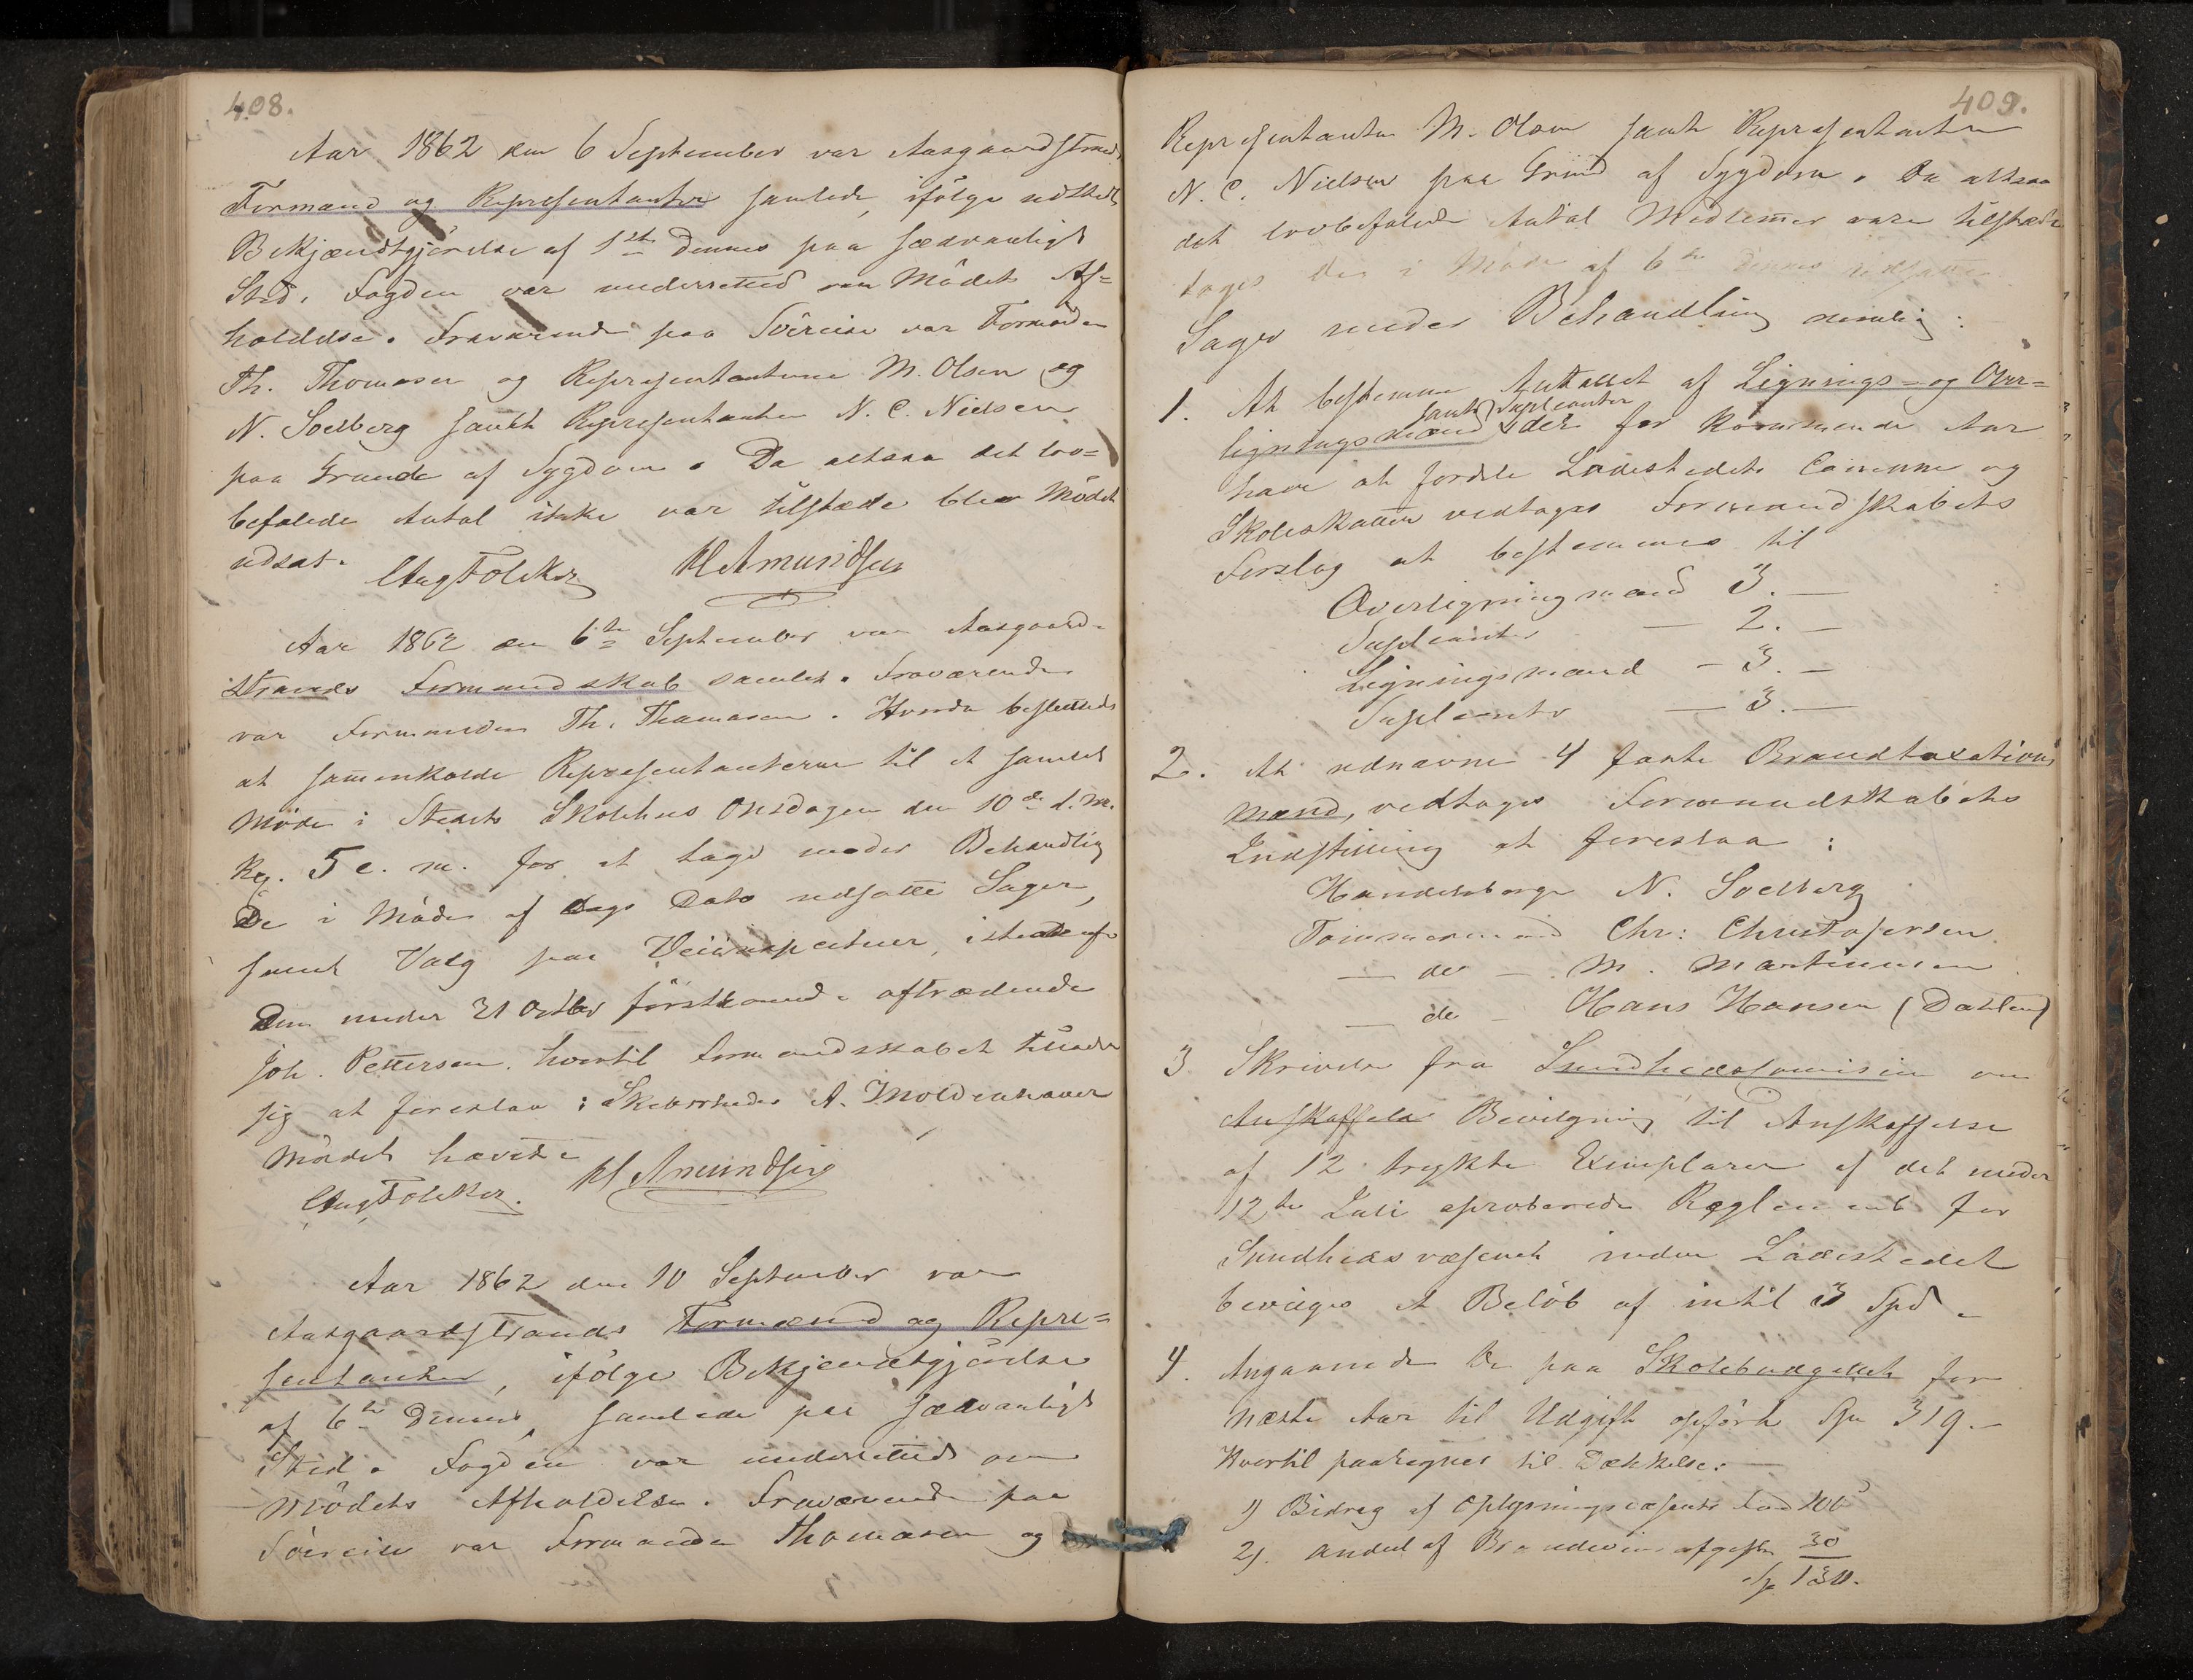 408.
Aar 1862 den 6 September var Aasgaardstrands
Formænd og Repræsentanter samlede, ifølge udstedt
Bekjændtgjörelse af 1ste dennes paa sædvanligt
Sted. Fogden var underrettet om Mödets Af=
holdelse. Fraværende paa Söreise var Formanden
Th. Thomasen og Repræsentanterne M. Olsen og
N. Soelberg samt Repræsentanten N. C. Nielsen
paa Grund af Sygdom. Da altsaa det lov=
befalede Antal ikke var tilstæde blev Mödet
udsat.
Aug Foleker HAmundsen
Aar 1862 den 6te September var Aasgaard-
strands Formandskab samlet. Fraværende
var Formanden Th. Thomasen. Hvorda besluttedes
at sammenkalde Repræsentanterne til et samlet
Möde i Stedets Skolehus Onsdagen den 10de d. M.
Kl. 5 e. m. for at tage under Behandling
De i Möde af Dags Dato udsatte Sager,
samt Valg paa Veiinspecteur, istedetfor
Den under 31 Octbr förstkomende aftrædende
Joh. Pettersen. hvortil Formandskabet tillader
sig at foreslaa: Skibsreder A. Moldenhauer
Mödet hævet.
Aug Foleker. HAmundsen
Aar 1862 den 10 September var
Aasgaardstrands Formænd og Repre=
sentanter, ifölge Bekjendtgjörelse
af 6te Dennes, samlede paa sædvanligt
Sted. Fogden var underrettet om
Mödets Afholdelse. Fraværende paa
Söreise var Formanden Thomasen og
409.
Repræsentanten M. Olsen samt Repræsentanten
N. C. Nielsen paa Grund af Sygdom. Da altsaa
det lovbefalede Antal Medlemmer vare tilstæde
toges de i Möde af 6te dennes udsatte
Sager under Behandling nemlig:
1. At bestemme Antallet af Lignings- og Over=
samt Supleanter
ligningsmænd der for kommende Aar
have at fordele Ladestedets Comune og
Skoleskatter vedtages Formandskabets
Forslag at bestemmes til
Overligningsmænd 3. —
Supleanter — 2. —
Ligningsmænd — 3. —
Supleanter — 3. —
2. At udnævne 4 faste Brandtaxations
mænd, vedtages Formandskabets
Indstilling at foreslaa:
Handelsborger N. Soelberg
Tømmermænd Chr: Christofersen
— do — M. Martinusen
— do — Hans Hansen (Dahlen)
3 Skrivelse fra Sundhedscomisionen om
Anskaffelse Bevilgning til Anskaffelse
af 12 trykte Exemplarer af det under
12te Juli aproberede Reglement for
Sundhedsvæsenet inden Ladestedet
beviliges et Belöb af intil 3 Spd.
4. Angaaende De paa Skolebudgettet for
næste Aar til Udgift opförte Sp 319.-
Hvortil paaregnes til Dækkelse: —
1) Bidrag af Oplysningsvæsenets Fond 100
2). Andeel af Brændevinsafgiften 30
Sp 130.